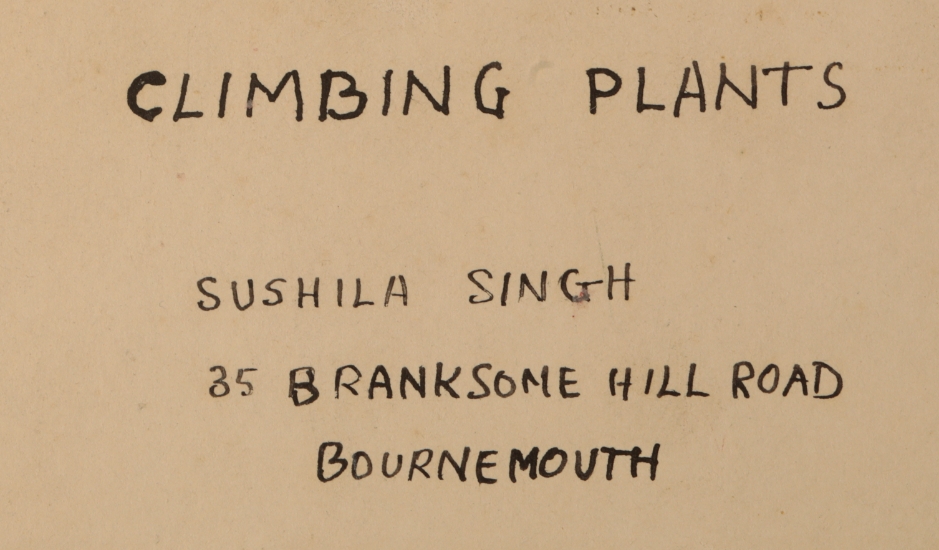 CLIMBING PLANTS
SUSHILA SINGH
35 BRANKSOME HILL ROAD
BOURNEMOUTH